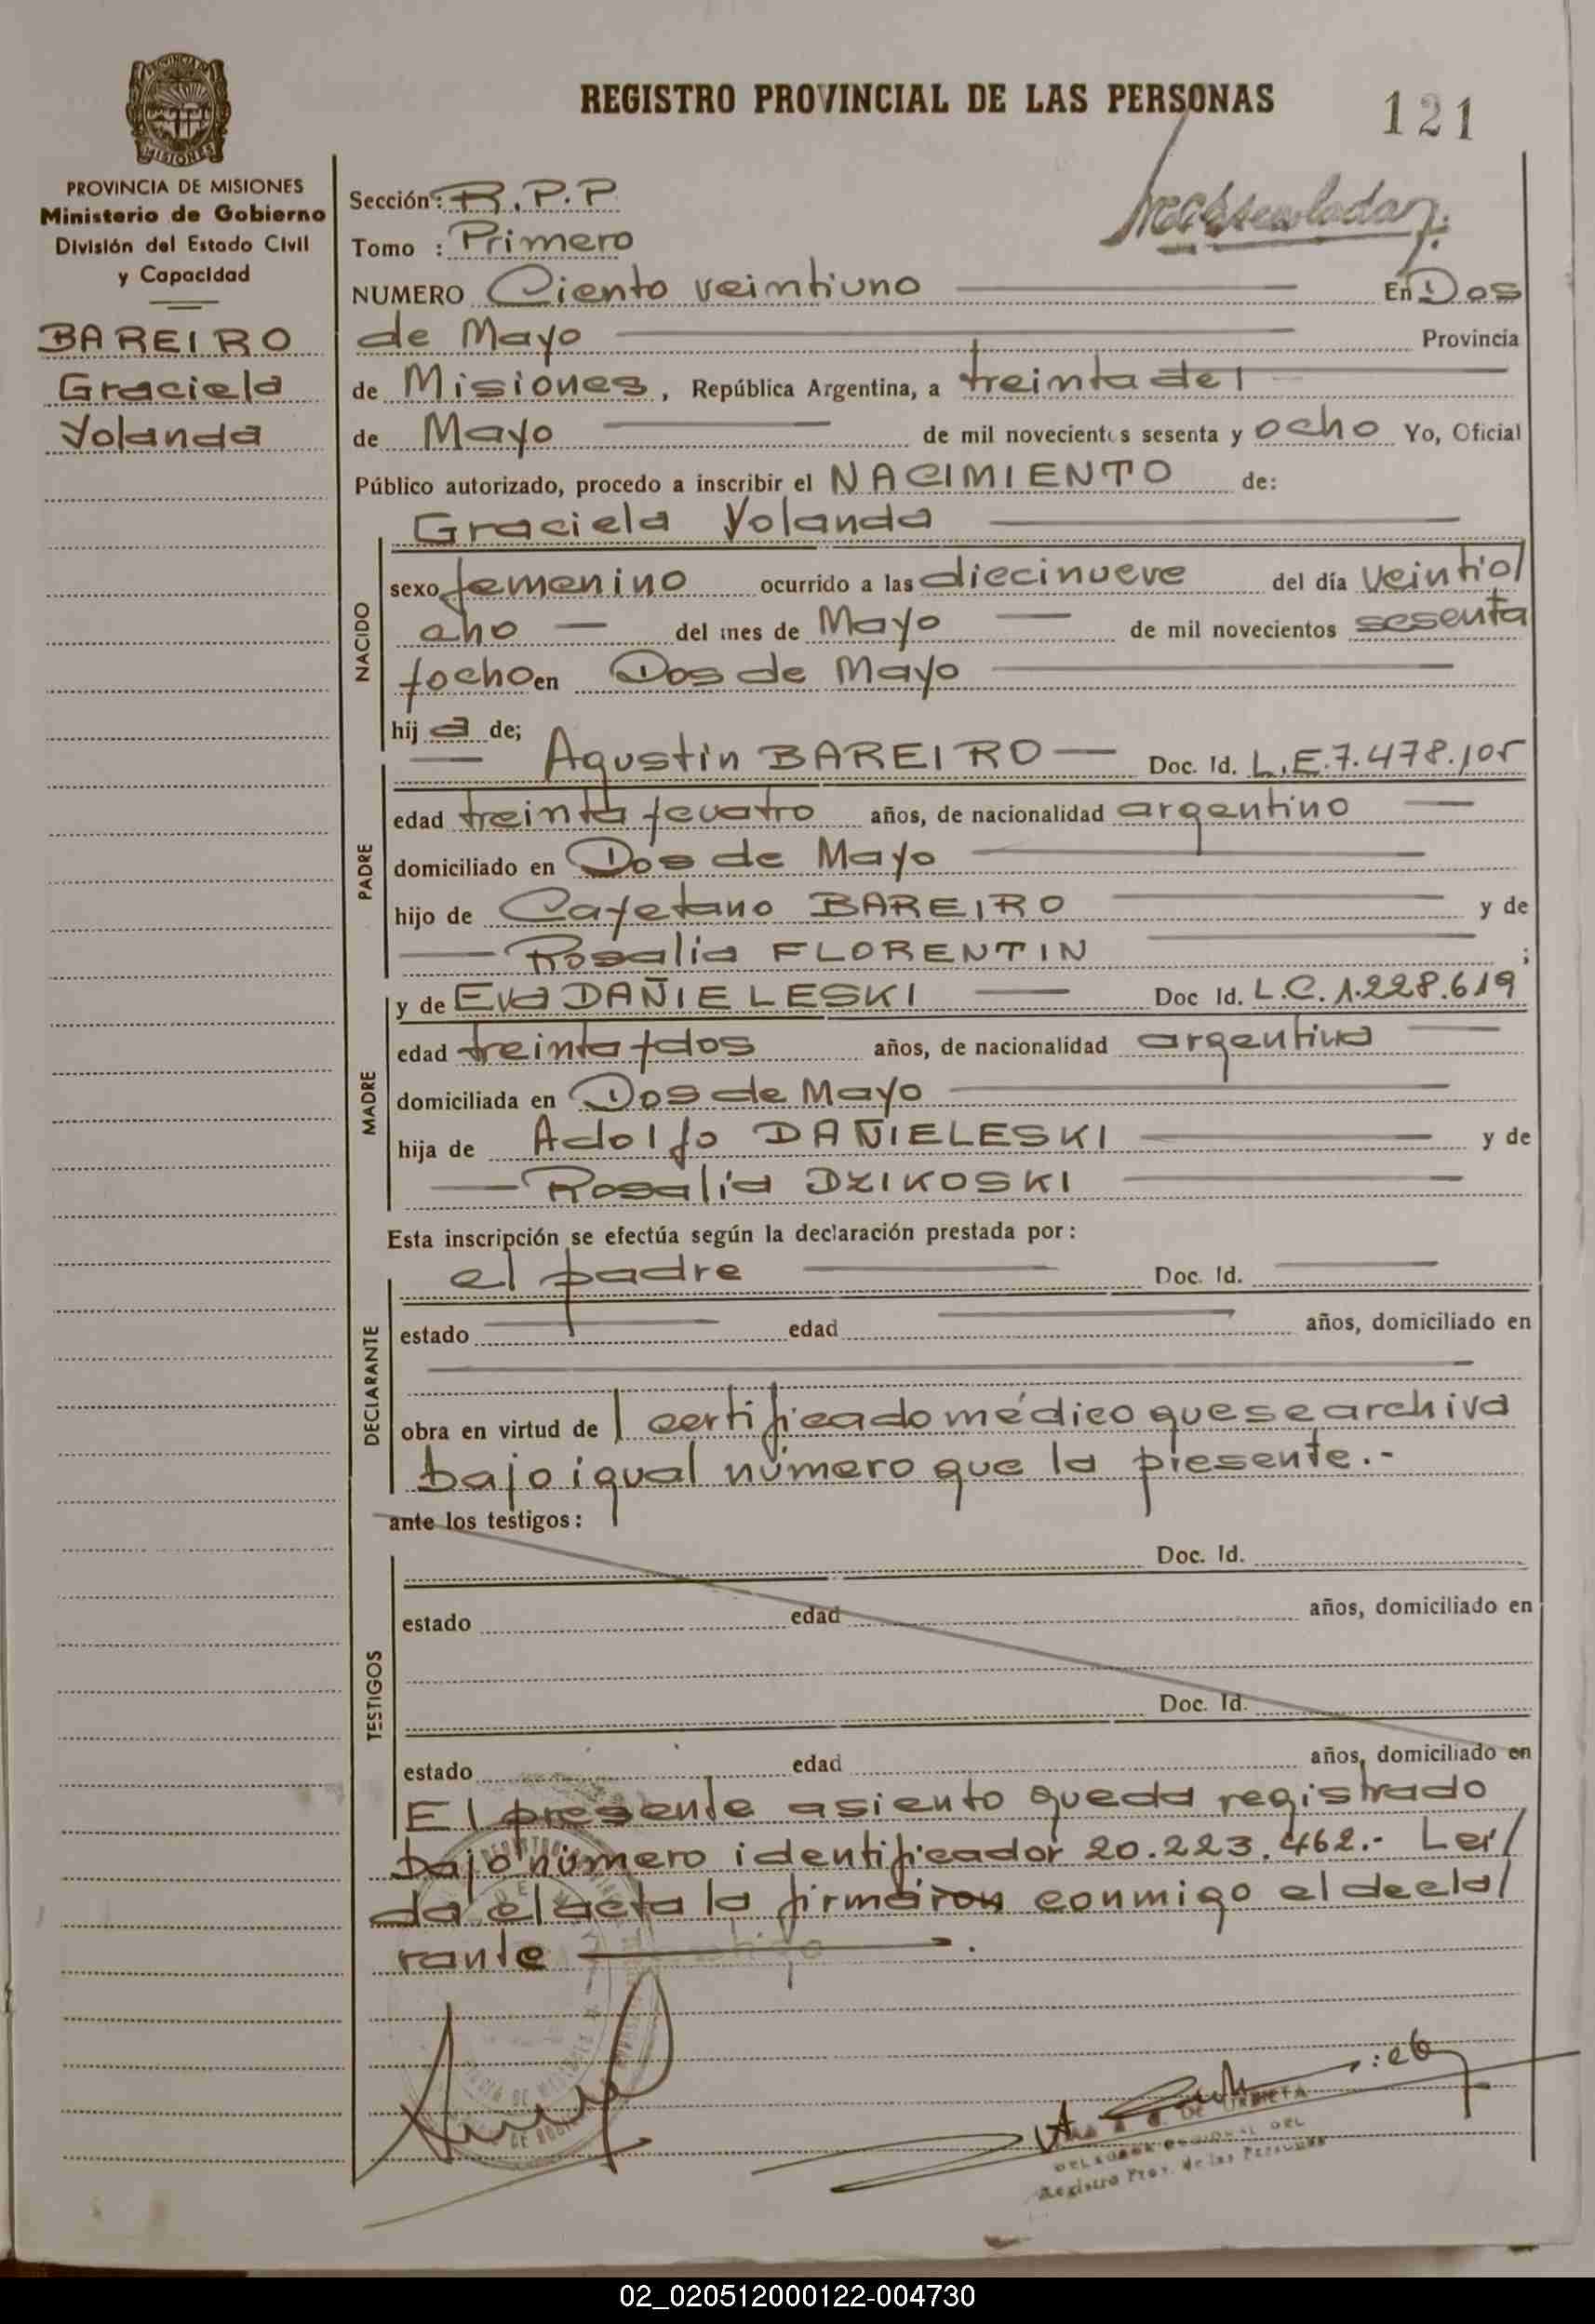 REGISTRO PROVINCIAL DE LAS PERSONAS
121
MISIONES
PROVINCIA DE MISIONES
Ministerio de Gobierno
División del Estado Civil
y Capacidad
BAREIRO
Graciela
Yolanda
Sección: R.P.P
Tomo : Primero
NUMERO Ciento veintiuno En Dos
de Mayo Provincia
de Misiones, República Argentina, a treinta de l
de Mayo de mil novecientos sesenta y ocho Yo, Oficial
Público autorizado, procedo a inscribir el NACIMIENTO de:
Graciela Yolanda
NACIDO
sexo femenino ocurrido a las diecinueve del día veintio/
cho del mes de Mayo de mil novecientos sesenta
yocho en Dos de Mayo
hij a de;
PADRE
Agustin BAREIRO Doc. Id. L.E.7.478.105
edad treinta ycuatro años, de nacionalidad argentino
domiciliado en Dos de Mayo
hijo de Cayetano BAREIRO y de
Rosalia FLORENTIN ;
MADRE
y de Eva DAÑIELESKI Doc Id. L.C. 1.228.619
edad treinta ydos años, de nacionalidad argentina
domiciliada en Dos de Mayo
hija de Adolfo DAÑIELESKI y de
Rosalia DZIKOSKI
Esta inscripción se efectúa según la declaración prestada por:
DECLARANTE
el padre Doc. Id.
estado edad años, domiciliado en
obra en virtud de l certificado médico que se archiva
bajo igual número que la presente.-
ante los testigos:
TESTIGOS
Doc. Id.
estado edad años, domiciliado en
Doc. Id.
estado edad años, domiciliado en
El presente asiento queda registrado
bajo número identificador 20.223.462.- Leí/
da el acta la firmaron conmigo el decla/
rante .
DE URBIETA
DELEGADA REGIONAL DEL
Registro Prov. de las Personas
02_020512000122-004730